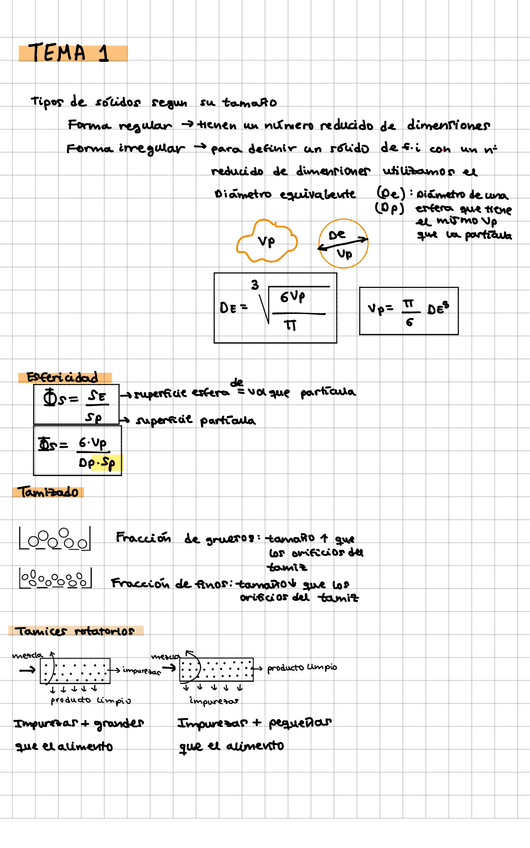 TEMA 1
Tipos de sólidos segun su tamaño
Forma regular → tienen un número reducido de dimensiones
Forma irregular → para definir un sólido de f.i con un nº
reducido de dimensiones utilizamos el
Diámetro equivalente (De) : Diámetro de una
(Dp) esfera que tiene
el mismo Vp
que la partícula
Vp
De
Vp
DE = ∛(6Vp / π)
Vp = π/6 DE³
Esfericidad
Φs = SE / Sp
→ superficie esfera de = vol que partícula
→ superficie partícula
Φs = 6·Vp / Dp·Sp
Tamizado
Fracción de gruesos: tamaño ↑ que
los orificios del
tamiz
Fracción de finos: tamaño ↓ que los
orificios del tamiz
Tamices rotatorios
mezcla
→ impurezas
producto limpio
Impurezas + grandes
que el alimento
mezcla
→ producto limpio
impurezas
Impurezas + pequeñas
que el alimento